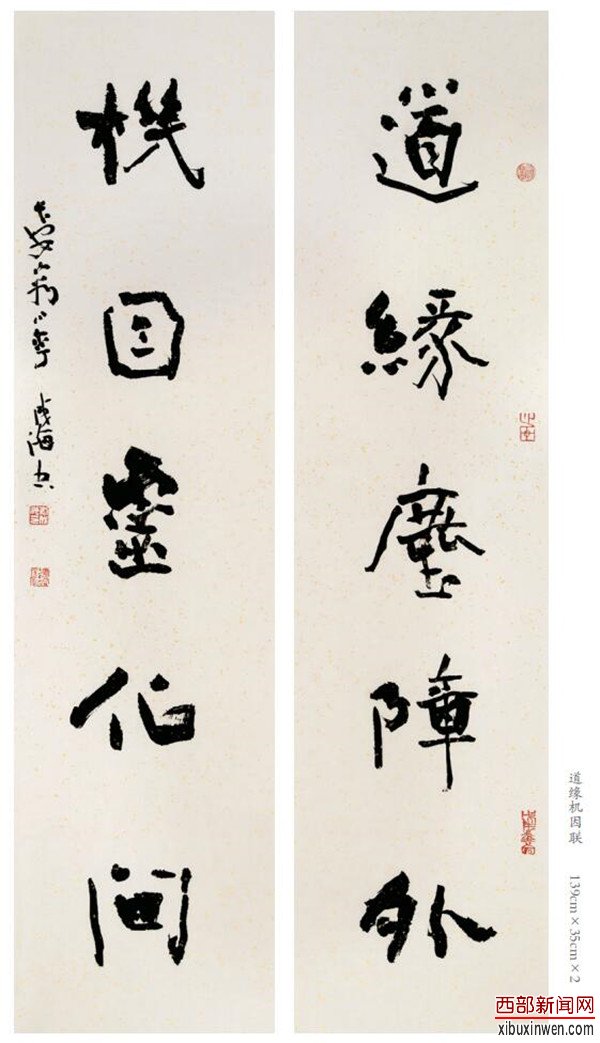 道緣塵障外
機因靈化間
道缘机因联 139cm×35cm×2
西部新闻网
xibuxinwen.com